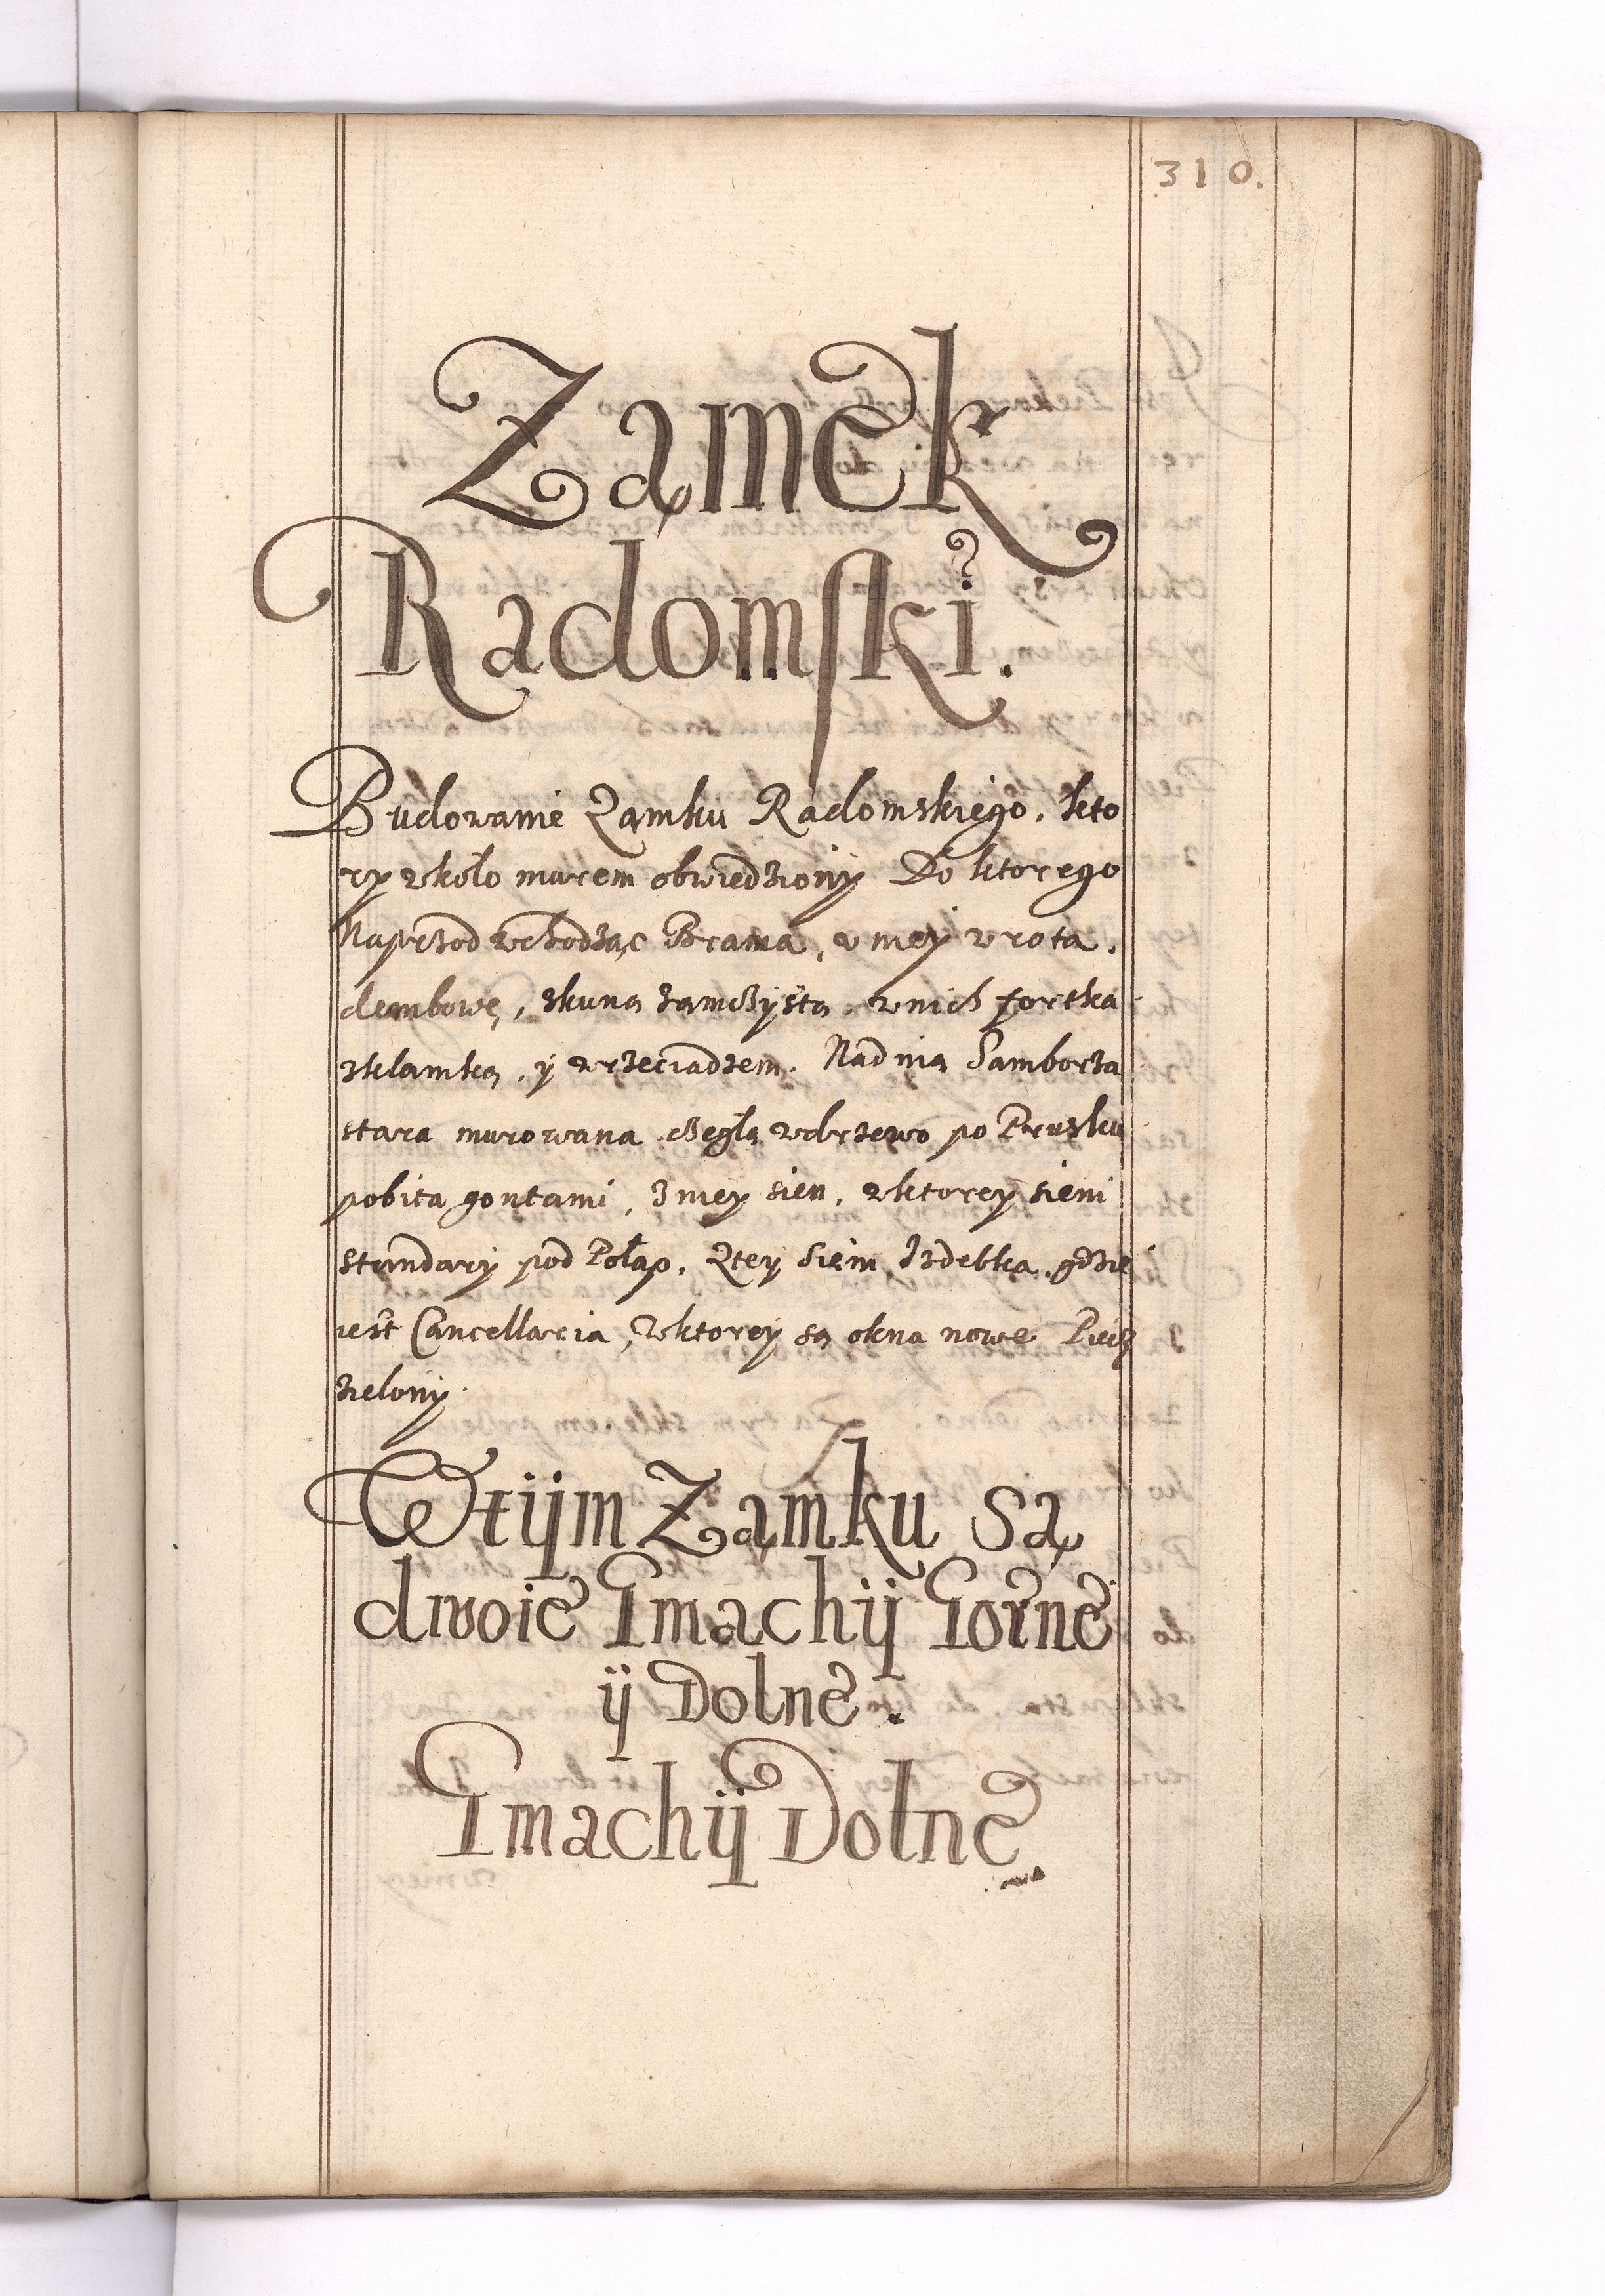 310.
Zamek
Radomski.
Budowanie Zamku Radomskiego, kto
ry wkoło murem obwiedziony Do ktorego
Naprzod wchodząc Brama, v niey wrota
dembowe, skuną zamczystą, w nich fortka
zklamką, y wrzeciadzem. Nad nią Samborza
stara murowana cegłą wdrzewo po Prusku
pobita gontami, z niey sien, wktorey sieni
standary pod Połap, Ztey Sieni Izdebka, gdzie
iest Cancellaria, Wktorey są okna nowe Piec
zielony.
Wtijm Zamku są
dwoie Gmachij Gorne
ij Dolne.
Gmachij Dolne.